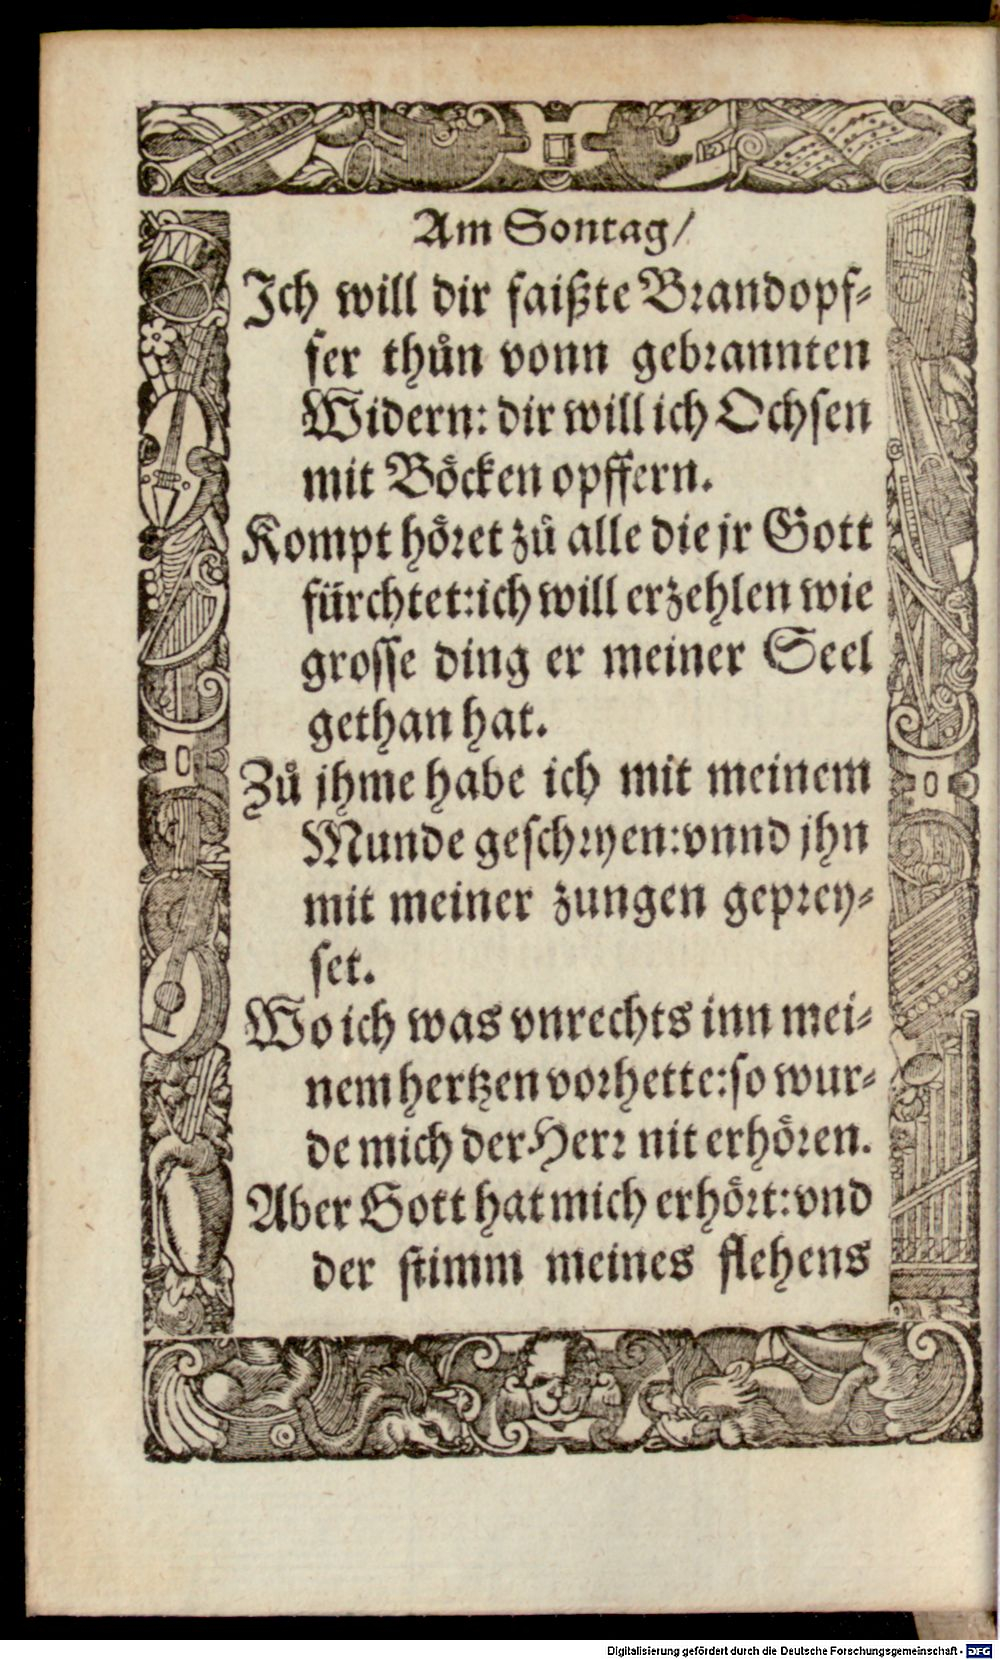 Am Sontag/
Ich will dir faißte Brandopf⸗
fer thůn vonn gebrannten
Widern: dir will ich Ochsen
mit Böcken opffern.
Kompt höret zů alle die jr Gott
fürchtet: ich will erzehlen wie
grosse ding er meiner Seel
gethan hat.
Zů jhme habe ich mit meinem
Munde geschryen: vnnd jhn
mit meiner zungen geprey⸗
set.
Wo ich was vnrechts inn mei⸗
nem hertzen vorhette: so wur⸗
de mich der Herr nit erhören.
Aber Gott hat mich erhört: vnd
der stimm meines flehens
Digitalisierung gefördert durch die Deutsche Forschungsgemeinschaft - DFG